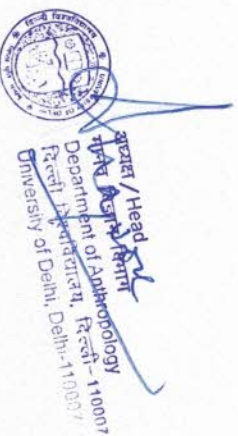 अध्यक्ष / Head
मानव विज्ञान विभाग
Department of Anthropology
दिल्ली विश्वविद्यालय, दिल्ली-110007
University of Delhi, Delhi-110007